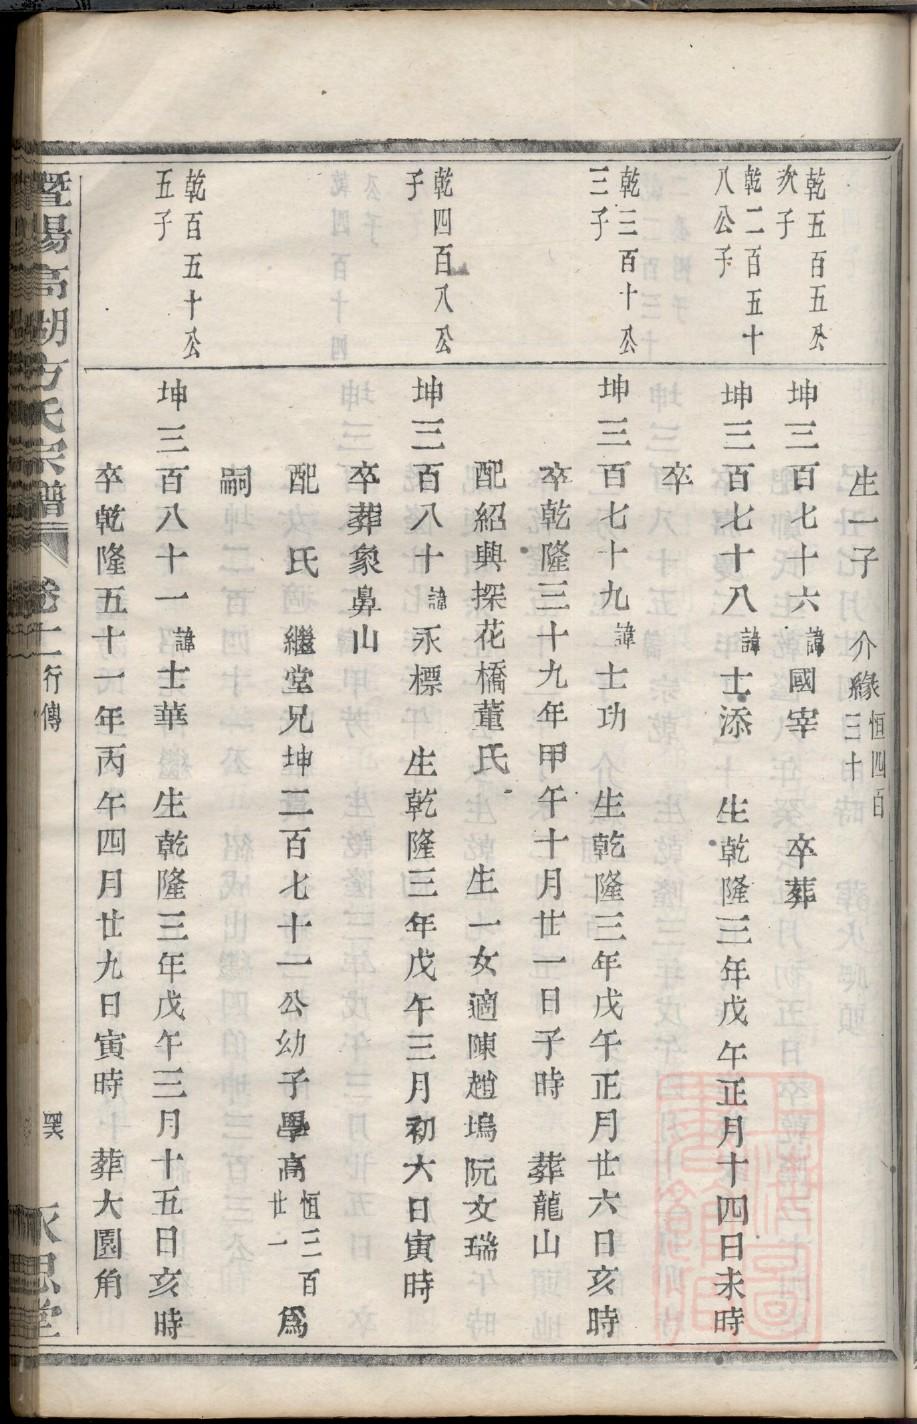 生一子　介緣恒四百三十
乾五百五公次子
坤三百七十六諱國宰　卒葬
乾二百五十八公子
坤三百七十八諱士添　生乾隆三年戊午正月十四日未時
卒
乾三百十公三子
坤三百七十九諱士功　生乾隆三年戊午正月廿六日亥時
卒乾隆三十九年甲午十月廿一日子時　葬龍山
配紹興探花橋董氏　生一女適陳趙塢阮文瑞
乾四百八公子
坤三百八十諱永標　生乾隆三年戊午三月初六日寅時
卒葬象鼻山
配　氏　繼堂兄坤二百七十一公幼子學高恒三百廿一為
嗣
乾百五十公五子
坤三百八十一諱士華　生乾隆三年戊午三月十五日亥時
卒乾隆五十一年丙午四月廿九日寅時　葬大園角
暨陽高湖方氏宗譜　卷十二　行傳　永思堂